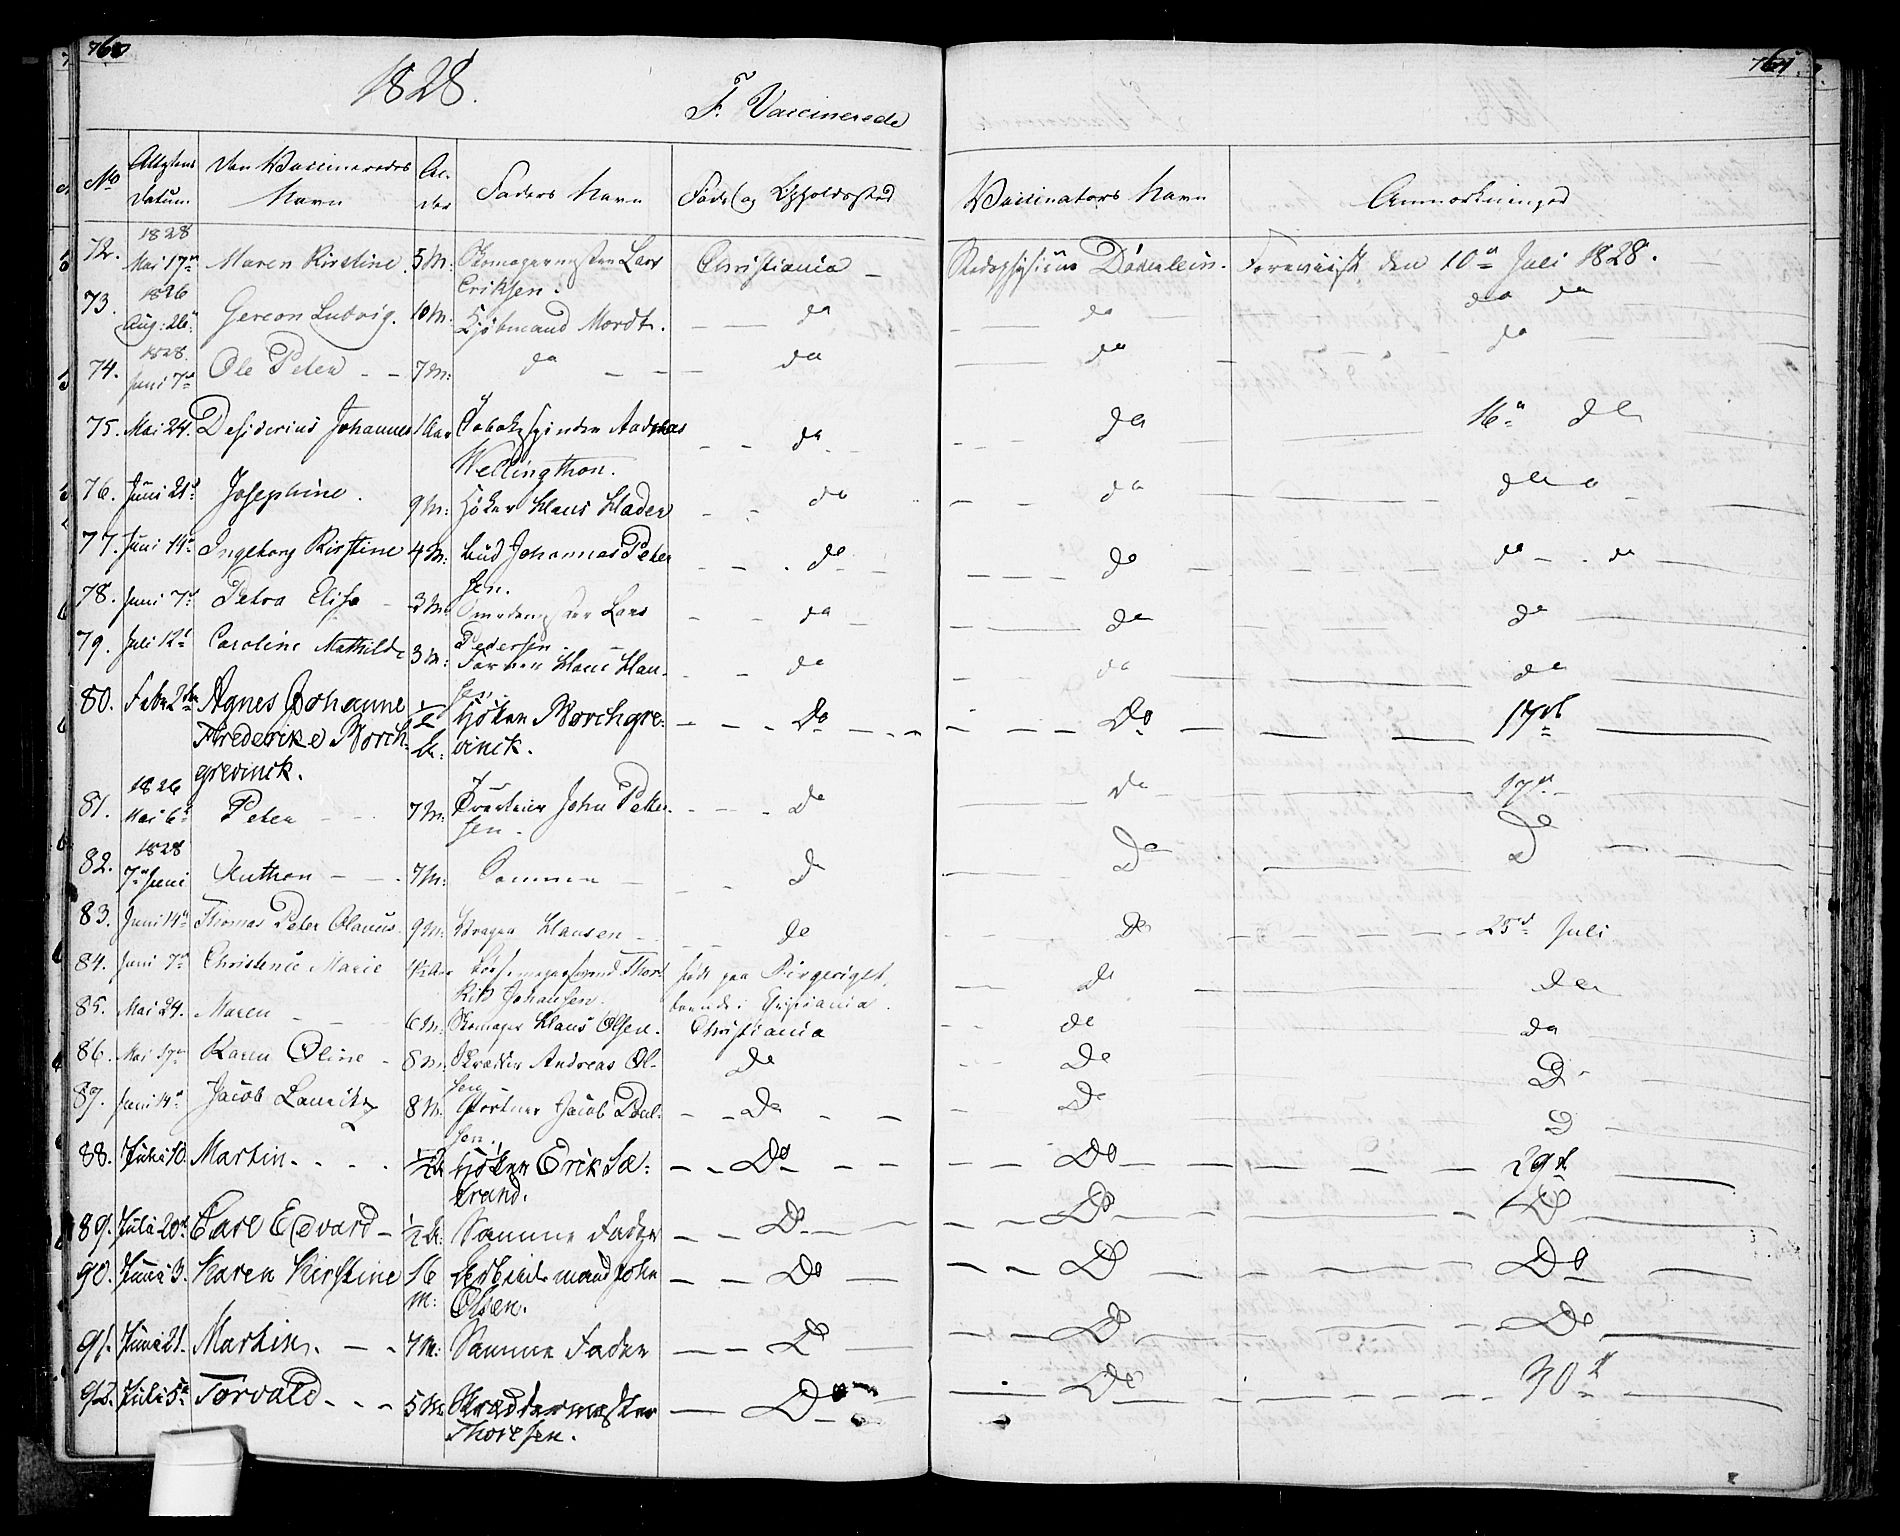 760
761
1828.
F. Vaccinerede
No
Attestens Datum
Den Vaccineredes Navn
Al-der
Faders Navn
Føde- og Opholdssted
Vaccinators Navn
Anmærkninger
72. 1828 Mai 17de Maren Kirstine 5 M: Skomagermester Lars Eriksen. Christiania Stadsphysicus Døderlein. Foreviist den 10de Juli 1828.
73. 1826 Aug: 26 Gereon Ludvig. 10 M. Kjøbmand Mordt. do do do do
74. 1828. Juni 7de Ole Peter 7 M: do do do do
75. Mai 24. Desiderius Johannes 1 Aar Tobakspinder Andreas Wellingthon. do do 16de do
76. Juni 21de Josephine. 9 M: Høker Claus do do do
77. Juni 14de Ingeborg Kirstine 4 M: Bud Johannes Petersen. do do do do
78. Juni 7de Petra Elise 3 M: Lars Pedersen. do do do
79. Juli 12te Caroline Mathilde 3 M: do do do
80. Febr Agnes Johanne Frederike Borchgrevinck. 1/2 A. Høker Borchgrevinck. Do Do 17de
81. 1826 Mai 6te Peter 7 M: John Petersen. do do 17de
82. 1828 7de Juni Anthon 7 M: Samme do Do Do
83. Juni 14de Thomas Peter Olaus 9 M: Hansen do do 25de Juli
84. Juni 7de Christence Marie Johansen. født paa Ringeriget, boende i Christiania. do do
85. Mai 24. Maren 6 M: Skomager Claus Olsen. Christiania do do
86. Mai 17de Karen Oline 8 M: Skræder Andreas Olsen Do Do D
87. Juni 14de Jacob Lauritz 8 M: Jacob Poulsen. Do Do D
88. Juli 10. Martin. 1/2 A Høker Erik Sætrand. Do Do 29de
89. Juli 20de Carl Edvard 1/2 A: Samme Fader Do Do Do
90. Juni 3. Karen Kirstine 16 M: Arbeidsmand John Olsen. Do Do Do
91. Juni 21. Martin. 7 M: Samme Fader Do Do Do
92. Juli 5te Torvald 5 M Skræddermester Thoresen. Do Do 30de